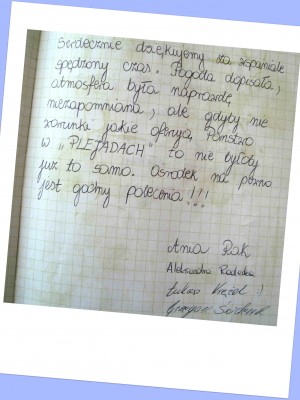 Serdecznie dziękujemy za wspaniale
spędzony czas. Pogoda dopisała,
atmosfera była naprawdę
niezapomniana, ale gdyby nie
warunki jakie oferują Państwo
w „PLEJADACH" to nie byłoby
już to samo. Ośrodek na pewno
jest godny polecenia!!!
Ania Rak
Aleksandra
Łukasz :)
Grzegorz